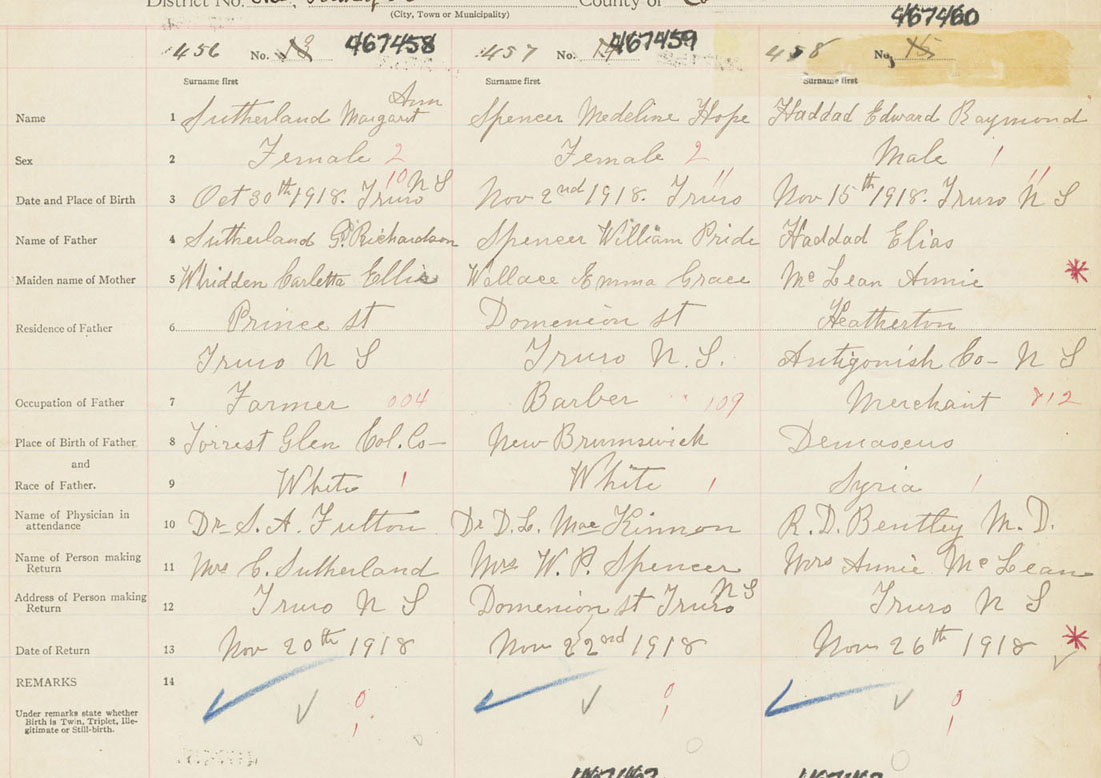 District No.
County of
(City, Town or Municipality)
467460
456 No. 13 467458
457 No. 14 467459
458 No. 15
Surname first
Surname first
Surname first
Name 1 Sutherland Margaret Ann
Spencer Medeline Hope
Haddad Edward Raymond
Sex 2 Female 2
Female 2
Male 1
Date and Place of Birth 3 Oct 30th 1918. Truro N S 10
Nov 2nd 1918. Truro 11
Nov 15th 1918. Truro N S 11
Name of Father 4 Sutherland G. Richardson
Spencer William Pride
Haddad Elias
Maiden name of Mother 5 Whidden Carletta Ellis
Wallace Emma Grace
McLean Annie *
Residence of Father 6 Prince st
Domenion st
Heatherton
Truro N S
Truro N. S.
Antigonish Co- N S
Occupation of Father 7 Farmer 004
Barber 109
Merchant 812
Place of Birth of Father 8 Forrest Glen Col. Co-
New Brunswick
Demascus
and
Race of Father. 9 White 1
White 1
Syria 1
Name of Physician in attendance 10 Dr S. A. Fulton
Dr D. L. MacKinnon
R. D. Bentley M. D.
Name of Person making Return 11 Mrs C. Sutherland
Mrs W. P. Spencer
Mrs Annie McLean
Address of Person making Return 12 Truro N S
Domenion st Truro N S
Truro N S
Date of Return 13 Nov 20th 1918
Nov 22nd 1918
Nov 26th 1918 *
REMARKS 14
Under remarks state whether
Birth is Twin, Triplet, Ille-
gitimate or Still-birth.
0 1
0 1
0 1